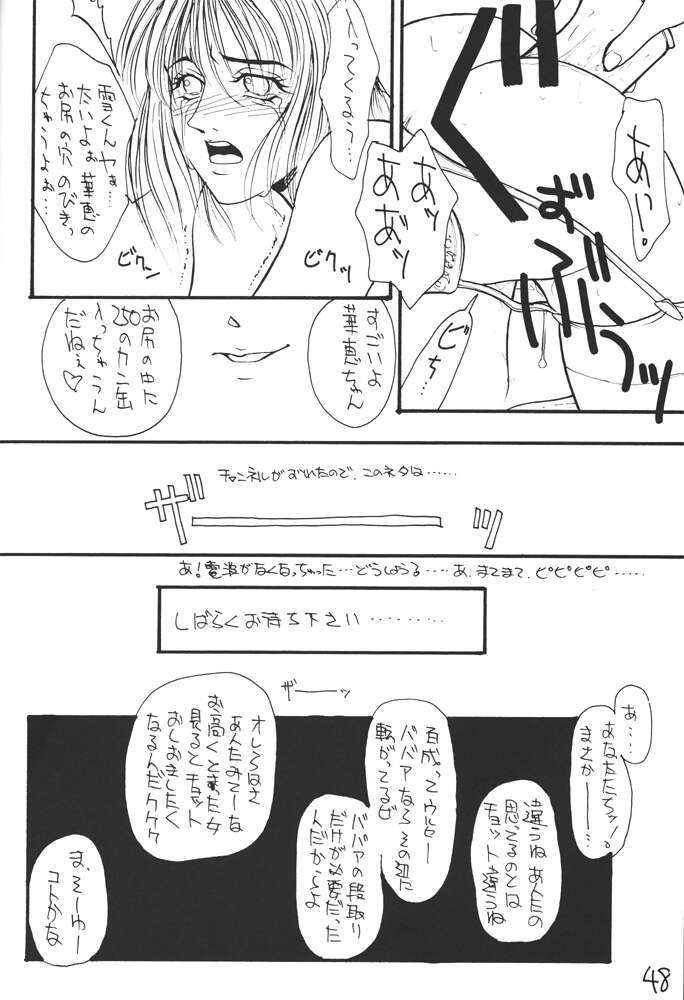 あいっ。
ずズッ
ビち…
あッ
あぁッ
入ってくるぅ…
雪くんヤぁ…
たいよぉ華恵の
お尻の穴のびきっ
ちゃうよぉ…
ビクッ
ビクン
すごいよ
華恵ちゃん
お尻の中に
250のカン缶
入っちゃうん
だねぇ♡
チャンネルがずれたので、このネタは……
ザーーッ
あ!電波がなくなっちゃった…どうしようる……あ、まてまて、ピピピピ……
しばらくお待ち下さい………
ザーーッ
あ……
あなたたちッ!。
まさかー…
違うねあんたの
思ってるのとは
チョット違うね
百成って
ババアならその辺に
転がってるぜ
ババアの段取り
だけが必要だった
んだからよ
オレらはさ
あんたみてーな
お高くとまった女
見るとチョット
おしおきしたく
なるんだククク
ま、そーゆー
コトかな
48